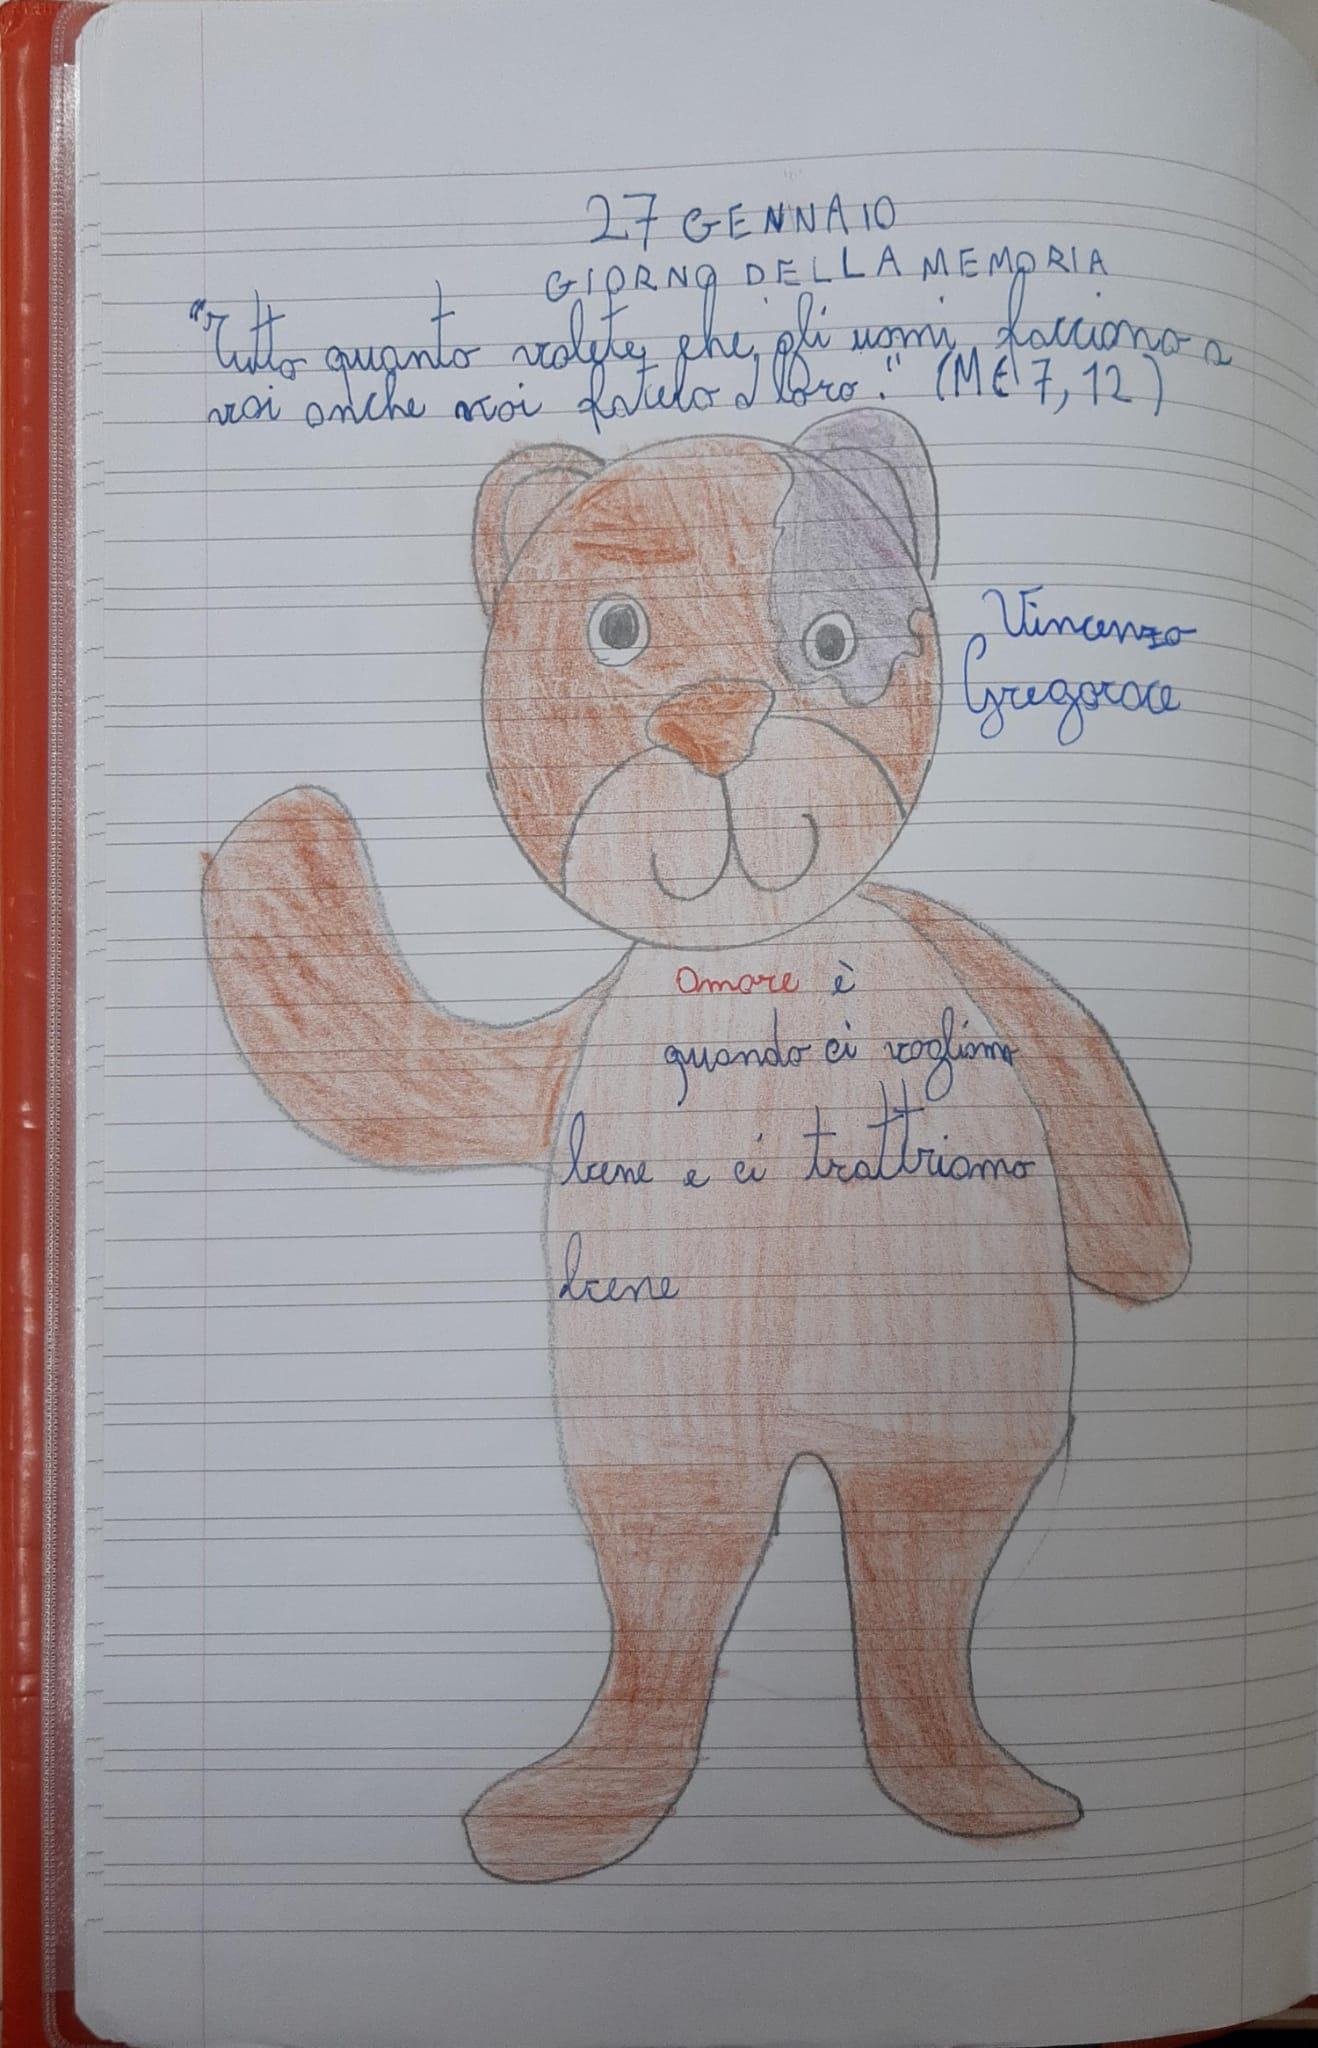 27 GENNAIO
GIORNO DELLA MEMORIA
"Tutto quanto volete che gli uomi facciano a
voi anche voi fatelo a loro." (Mt 7, 12)
Vincenzo
Gregorace
Amore è
quando ci vogliamo
bene e ci trattriamo
bene